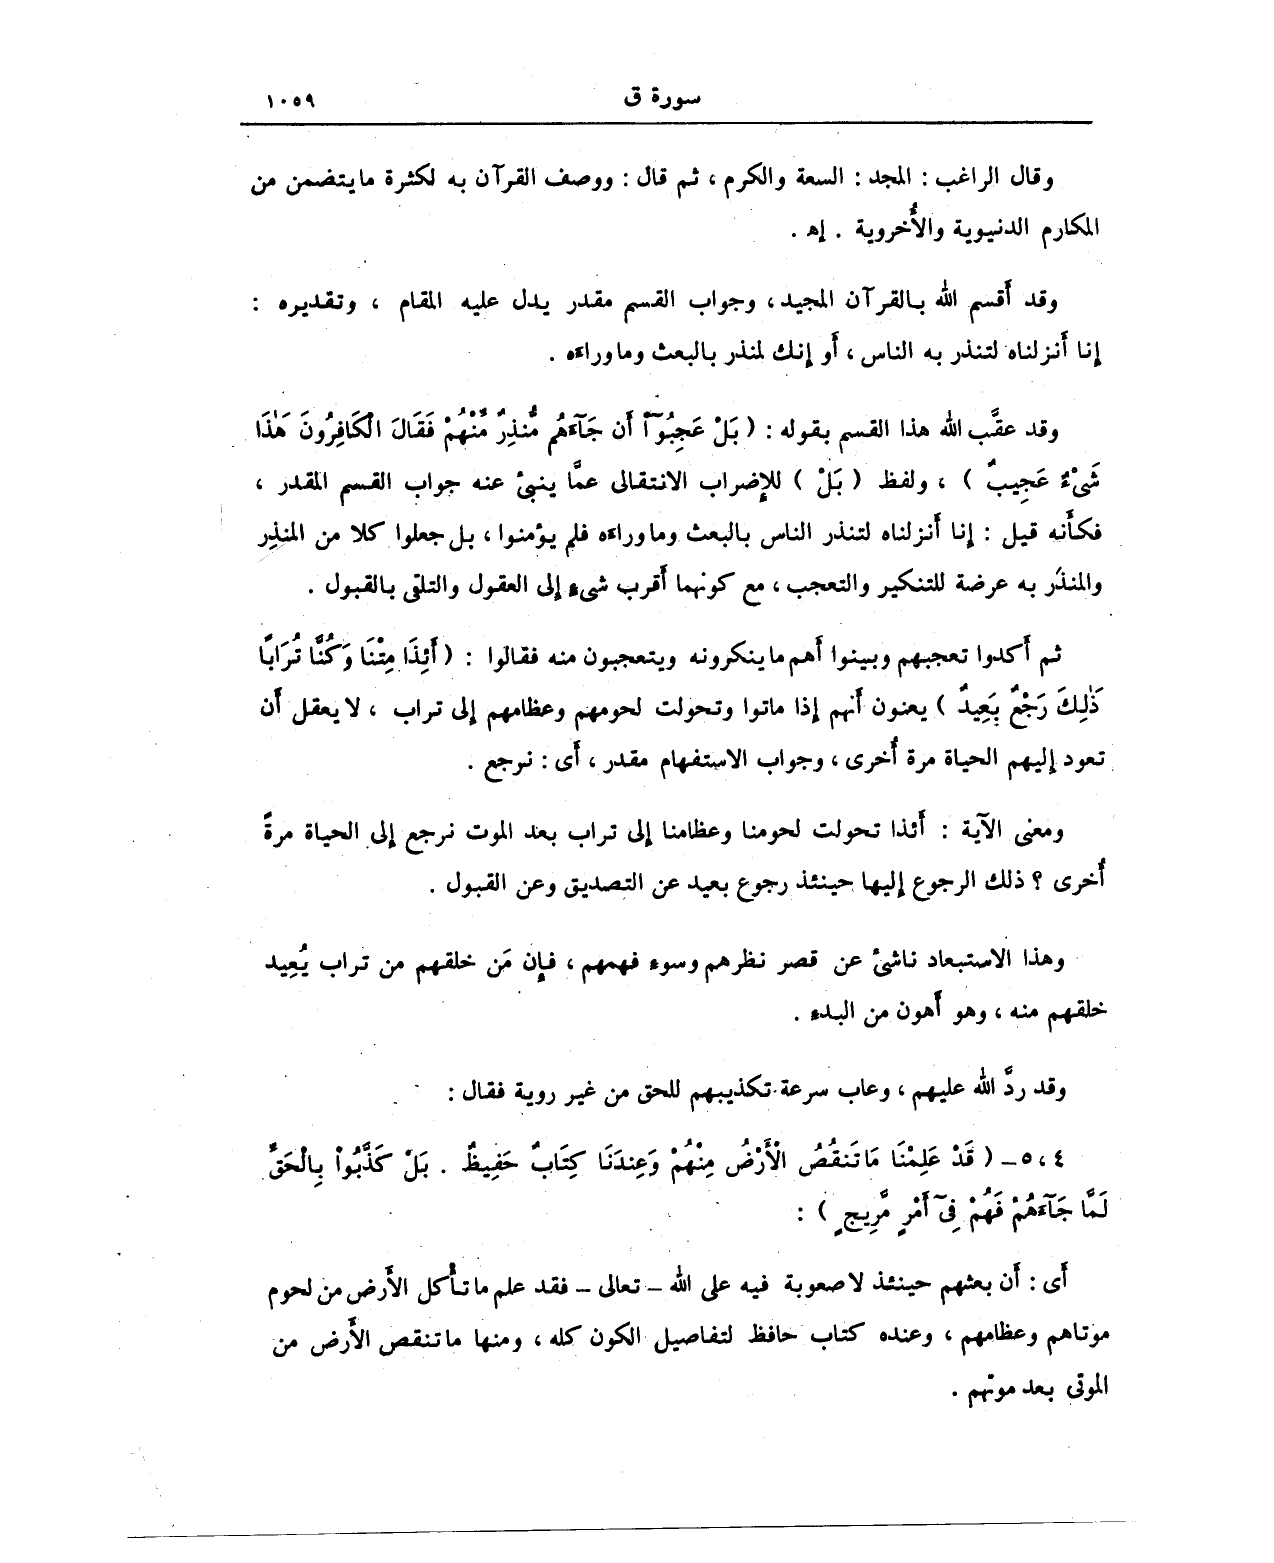 سورة ق ١٠٥٩
وقال الراغب : المجد : السعة والكرم ، ثم قال : ووصف القرآن به لكثرة ما يتضمن من
المكارم الدنيوية والأُخروية . إﻫ .
وقد أَقسم الله بالقرآن المجيد ، وجواب القسم مقدر يدل عليه المقام ، وتقديره :
إنا أَنزلناه لتنذر به الناس ، أَو إنك لمنذر بالبعث وما وراءه .
وقد عقَّب الله هذا القسم بقوله : ( بَلْ عَجِبُوٓاْ أَن جَآءَهُم مُّنذِرٌ مِّنْهُمْ فَقَالَ الْكَافِرُونَ هَٰذَا
شَىْءٌ عَجِيبٌ ) ، ولفظ ( بَلْ ) للإِضراب الانتقالى عمَّا ينبىءُ عنه جواب القسم المقدر ،
فكأَنه قيل : إنا أَنزلناه لتنذر الناس بالبعث وما وراءه فلم يؤمنوا ، بل جعلوا كلا من المنذِر
والمنذَر به عرضة للتنكير والتعجب ، مع كونهما أَقرب شىء إلى العقول والتلقى بالقبول .
ثم أَكدوا تعجبهم وبينوا أَهم ما ينكرونه ويتعجبون منه فقالوا : ( أَئِذَا مِتْنَا وَكُنَّا تُرَابًا
ذَٰلِكَ رَجْعٌ بَعِيدٌ ) يعنون أَنهم إذا ماتوا وتحولت لحومهم وعظامهم إلى تراب ، لا يعقل أَن
تعود إليهم الحياة مرة أُخرى ، وجواب الاستفهام مقدر ، أَى : نرجع .
ومعنى الآية : أَئذا تحولت لحومنا وعظامنا إلى تراب بعد الموت نرجع إلى الحياة مرةً
أُخرى ؟ ذلك الرجوع إليها حينئذ رجوع بعيد عن التصديق وعن القبول .
وهذا الاستبعاد ناشىءُ عن قصر نظرهم وسوء فهمهم ، فإِن مَن خلقهم من تراب يُعِيد
خلقهم منه ، وهو أَهون من البدء .
وقد ردَّ الله عليهم ، وعاب سرعة تكذيبهم للحق من غير روية فقال :
٤ ، ٥ - ( قَدْ عَلِمْنَا مَا تَنقُصُ الْأَرْضُ مِنْهُمْ وَعِندَنَا كِتَابٌ حَفِيظٌ . بَلْ كَذَّبُواْ بِالْحَقِّ
لَمَّا جَآءَهُمْ فَهُمْ فِىٓ أَمْرٍ مَّرِيجٍ ) :
أَى : أَن بعثهم حينئذ لا صعوبة فيه على الله - تعالى - فقد علم ما تأْكل الأَرض من لحوم
موتاهم وعظامهم ، وعنده كتاب حافظ لتفاصيل الكون كله ، ومنها ما تنقص الأَرض من
الموتى بعد موتهم .